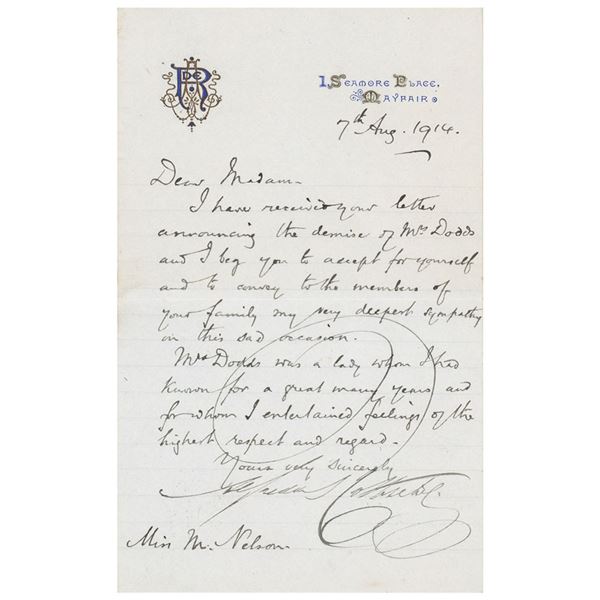 DE
R
1, Seamore Place,
Mayfair.
7th Aug. 1914.
Dear Madam
I have received your letter
announcing the demise of Mrs Dodds
and I beg you to accept for yourself
and to convey to the members of
your family my very deepest sympathy
on this sad occasion.
Mrs Dodds was a lady whom I had
known for a great many years and
for whom I entertained feelings of the
highest respect and regard.
Yours very sincerely
Alfred Rothschild.
Miss M. Nelson.